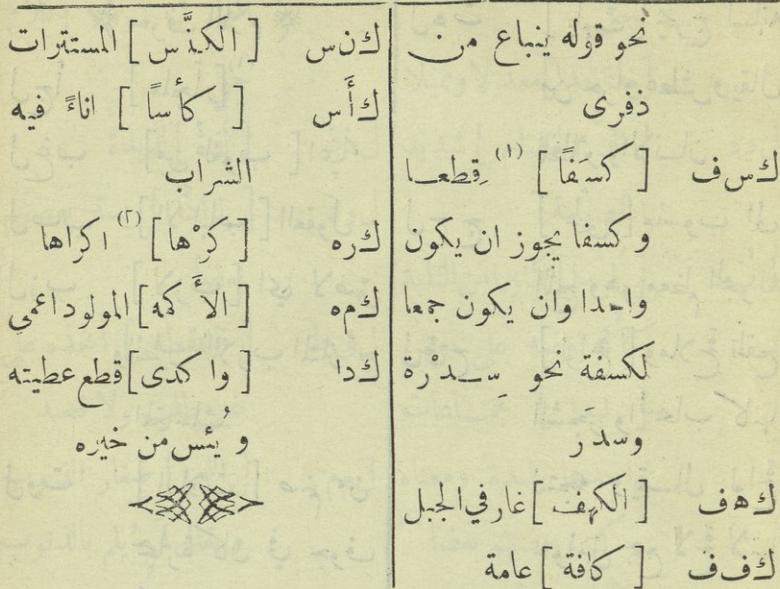 نحو قوله ينباع من
ذفرى
ك س ف [ كسَفًا ] (١) قِطعا
وكسفا يجوز ان يكون
واحدا وان يكون جمعا
لكسفةِ نحو سِدْرة
وسدر
ك ه ف [ الكهف ] غار في الجبل
ك ف ف [ كافة ] عامة
ك ن س [ الكنَّس ] المستترات
ك أَ س [ كأساً ] اناءً فيه
الشراب
ك ر ه [ كرْها ] (٢) اكراها
ك م ه [ الأَكمه ] المولود اعمي
ك د ا [ واكدى ] قطع عطيته
ويُئس من خيره